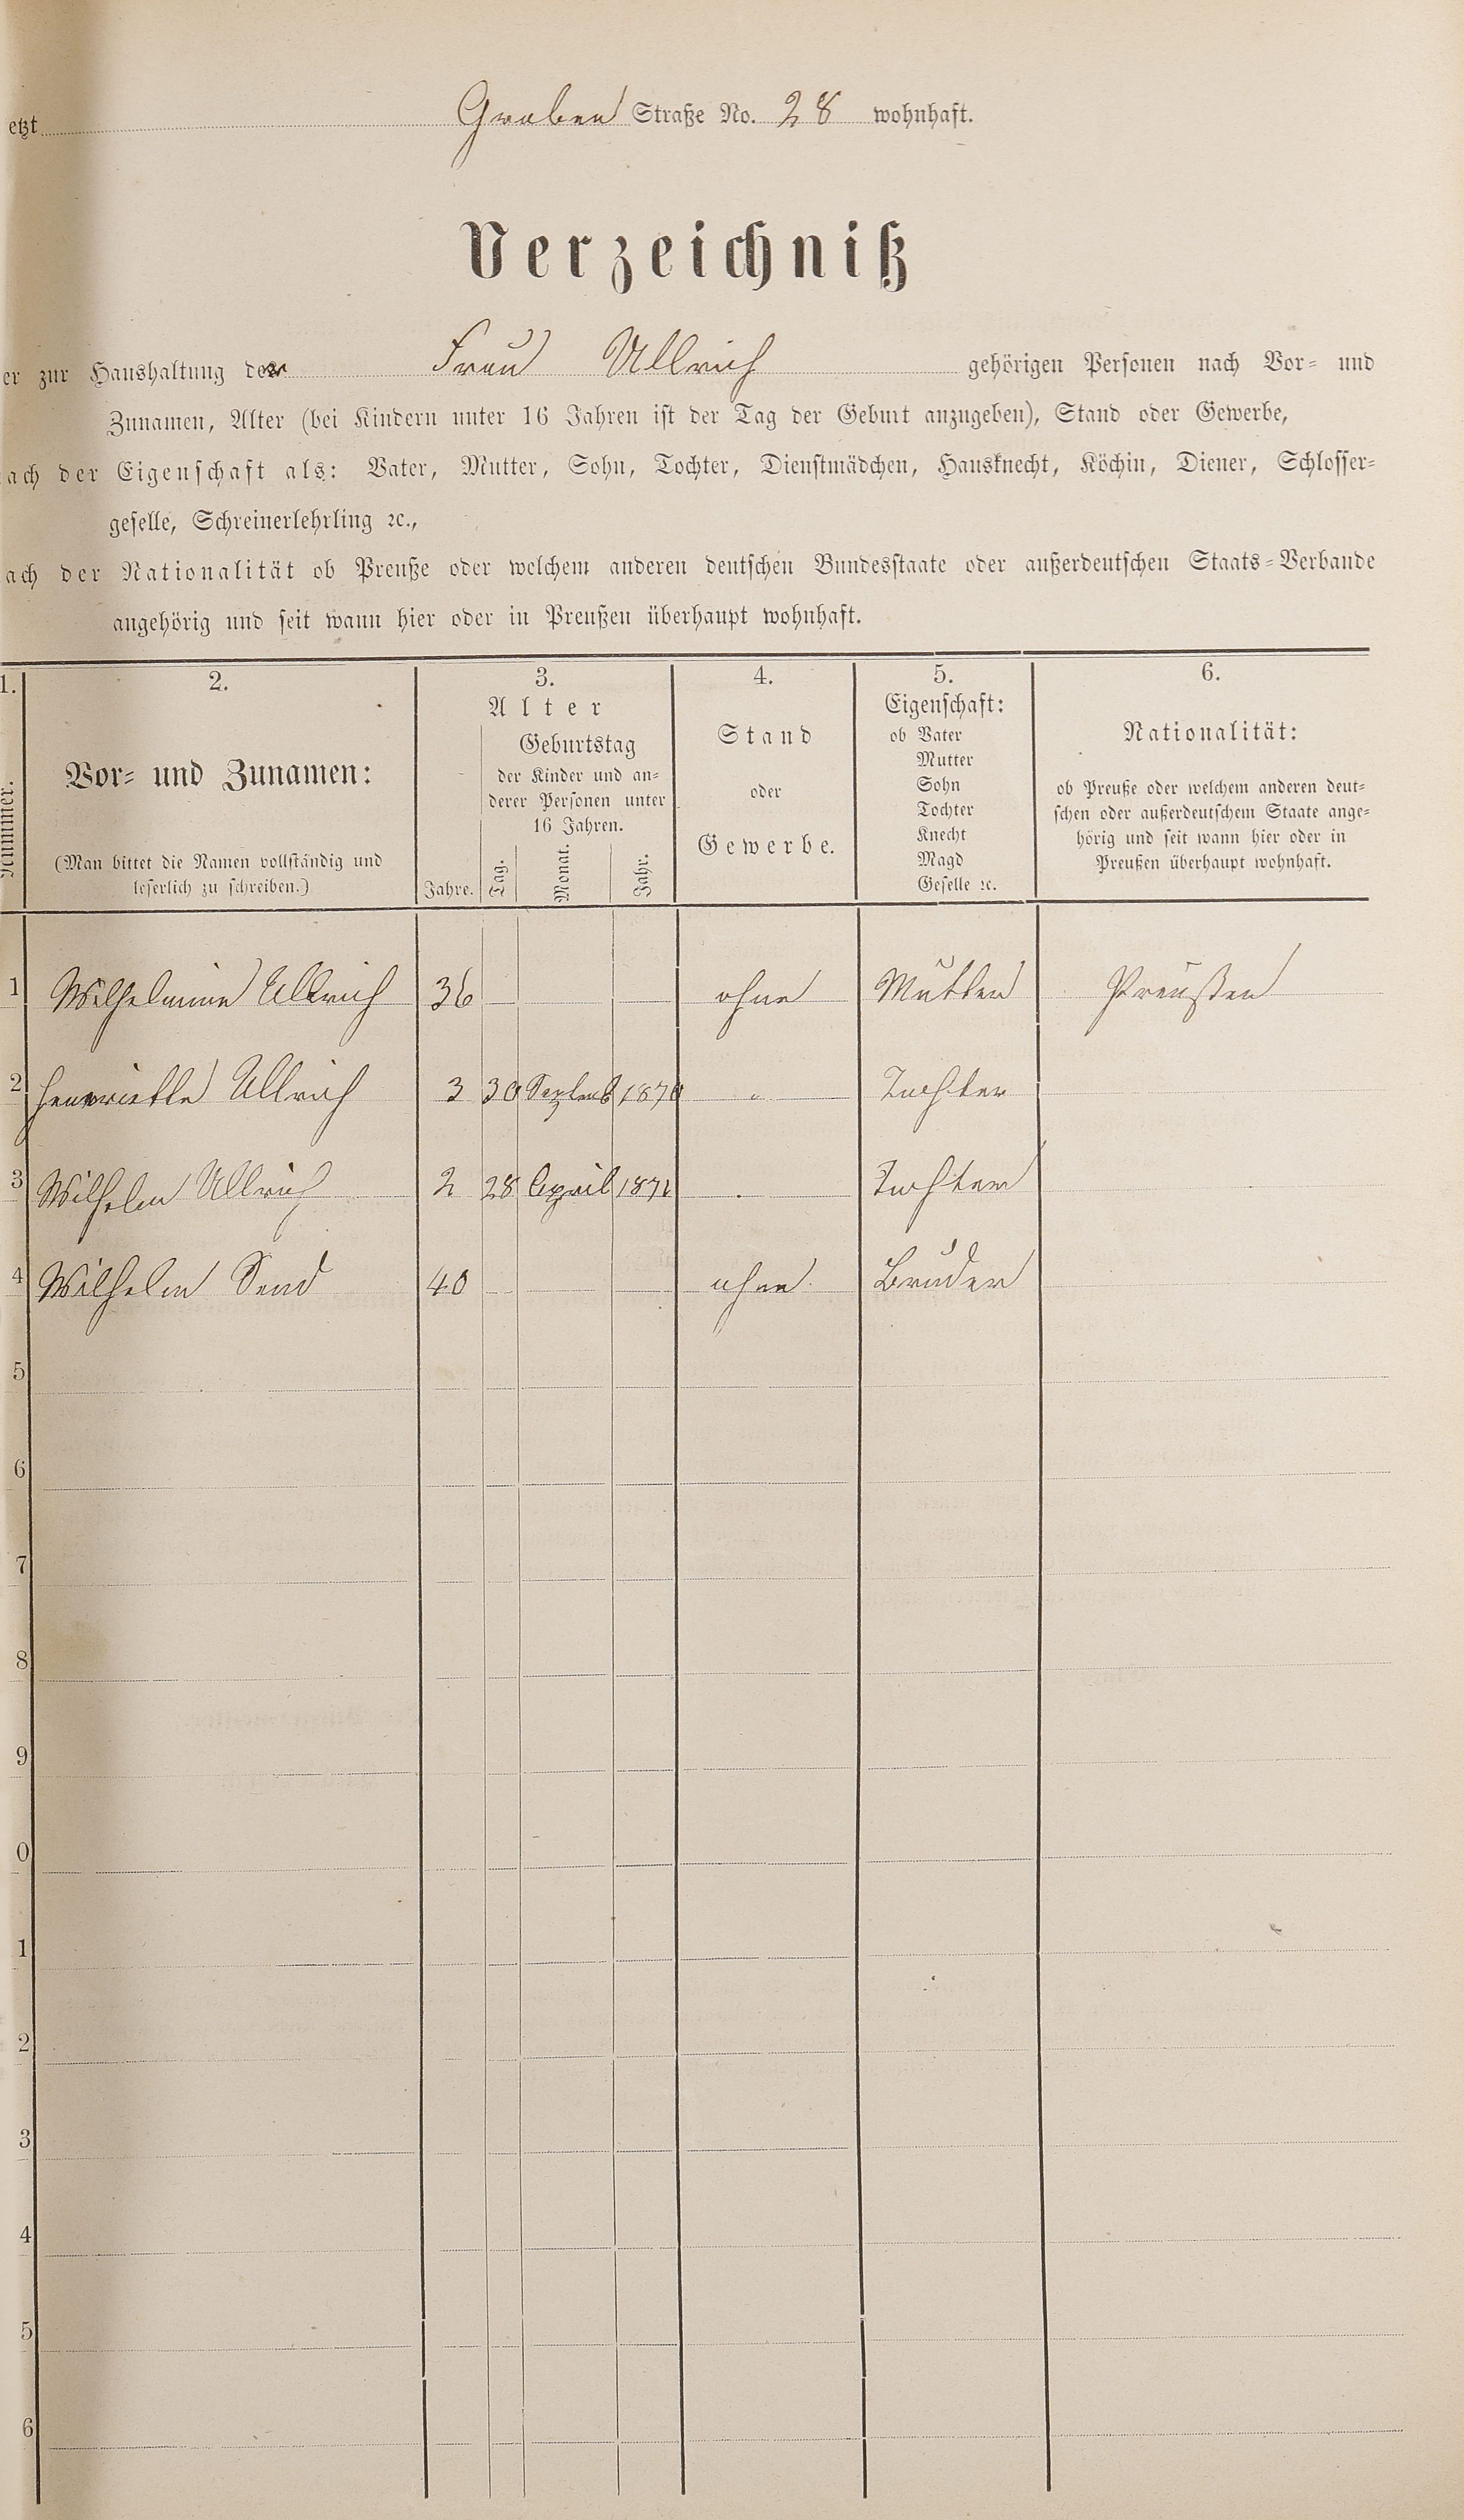 etzt Graben Straße No. 28 wohnhaft.
Verzeichniß
er zur Haushaltung der Frau Ullrich gehörigen Personen nach Vor- und
Zunamen, Alter (bei Kindern unter 16 Jahren ist der Tag der Geburt anzugeben), Stand oder Gewerbe,
ach der Eigenschaft als: Vater, Mutter, Sohn, Tochter, Dienstmädchen, Hausknecht, Köchin, Diener, Schlosser-
geselle, Schreinerlehrling ꝛc.,
ach der Nationalität ob Preuße oder welchem anderen deutschen Bundesstaate oder außerdeutschen Staats-Verbande
angehörig und seit wann hier oder in Preußen überhaupt wohnhaft.
1. 2. 3. 4. 5. 6.
Nummer.
Vor- und Zunamen:
(Man bittet die Namen vollständig und
leserlich zu schreiben.)
Alter
Jahre.
Geburtstag
der Kinder und an-
derer Personen unter
16 Jahren.
Tag. Monat. Jahr.
Stand
oder
Gewerbe.
Eigenschaft:
ob Vater
Mutter
Sohn
Tochter
Knecht
Magd
Geselle ꝛc.
Nationalität:
ob Preuße oder welchem anderen deut-
schen oder außerdeutschem Staate ange-
hörig und seit wann hier oder in
Preußen überhaupt wohnhaft.
1 Wilhelmine Ullrich 36 ohne Mutter Preußen
2 Henriette Ullrich 3 30 Septemb 1870 " Tochter
3 Wilhelm Ullrich 2 28 April 1872 Tochter
4 Wilhelm Send 40 ohne Bruder
5
6
7
8
9
0
1
2
3
4
5
6